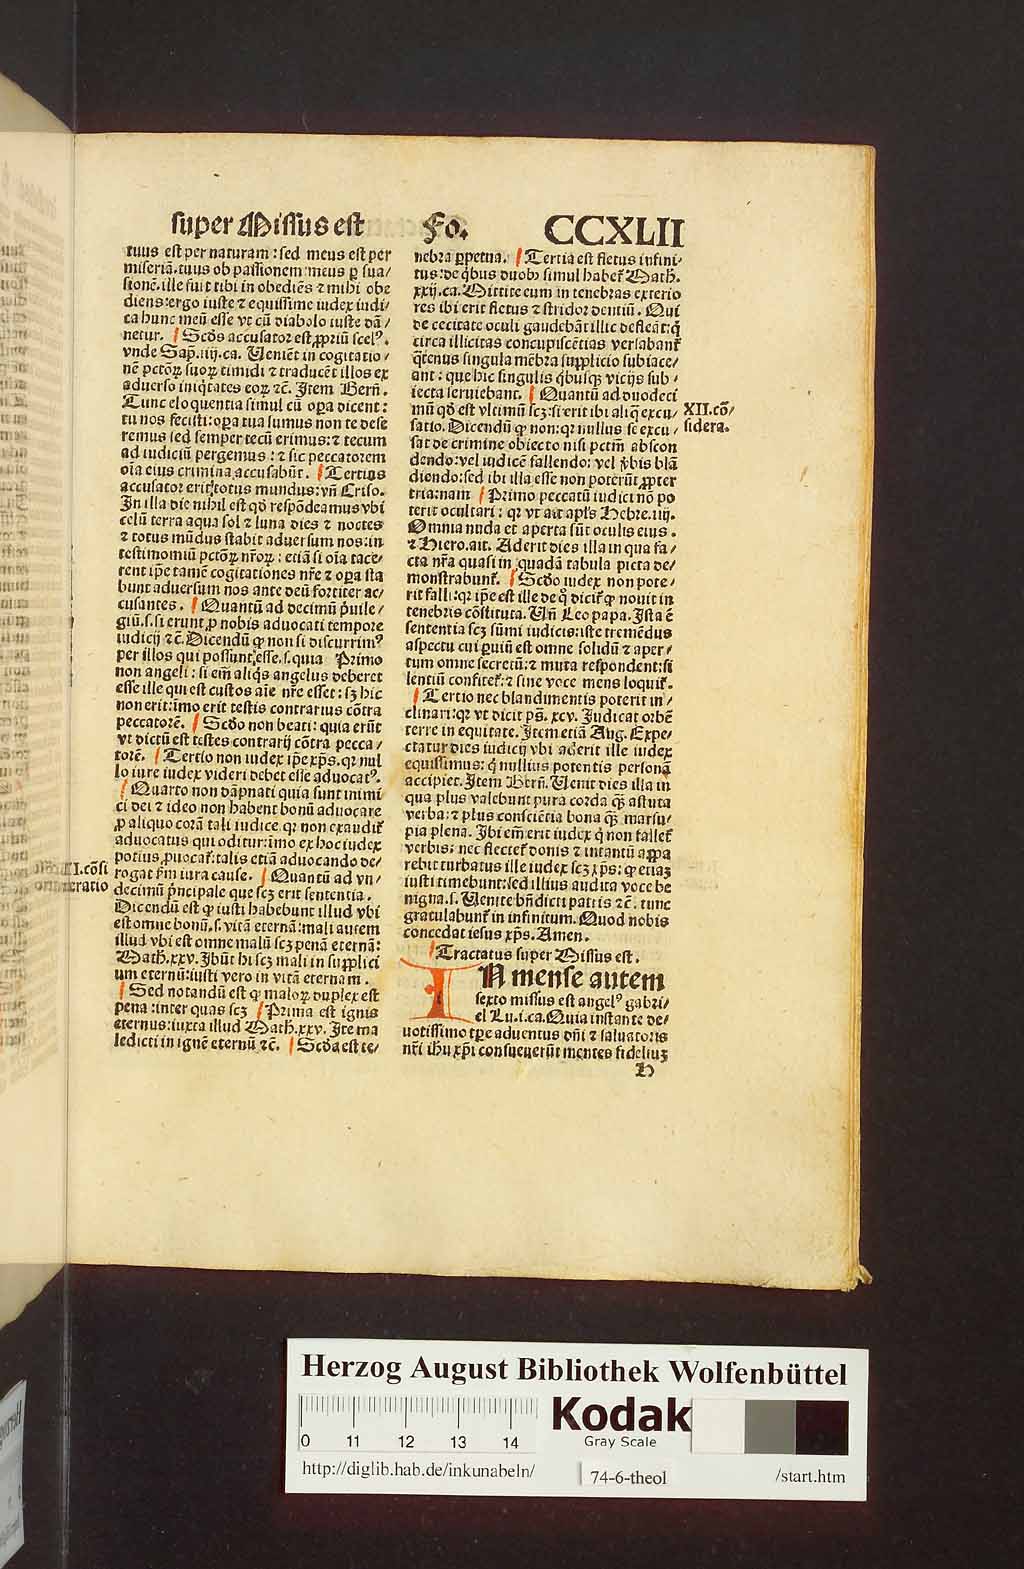 super Missus est Fo. CCXLII
tuus est per naturam : sed meus est per
miseriā. tuus ob passionem: meus ꝑ sua/
sionē. ille fuit tibi in obediēs ⁊ mihi obe
diens: ergo iuste ⁊ equissime iudex iudi/
ca hunc meū esse vt cū diabolo iuste dā/
netur. Scd̄s accusator est ꝓpriū scelꝰ.
vnde Sap̄. iiij. ca. Ueniēt in cogitatio/
nē pctōꝝ suoꝝ timidi ⁊ traducēt illos ex
aduerso iniq̇tates eoꝝ ⁊c̄. Item Bern̄.
Tunc eloquentia simul cū oꝑa dicent:
tu nos fecisti: oꝑa tua sumus non te dese
remus sed semper tecū erimus: ⁊ tecum
ad iudiciū pergemus : ⁊ sic peccatorem
oīa eius crimina accusabūt. Tertius
accusator erit totus mundus: vn̄ Criso.
In illa die nihil est qd̄ respōdeamus vbi
celū terra aqua sol ⁊ luna dies ⁊ noctes
⁊ totus mūdus stabit aduersum nos: in
testimoniū pctōꝝ nr̄oꝝ : etiā si oīa tace/
rent ip̄e tamē cogitationes nr̄e ⁊ oꝑa sta
bunt aduersum nos ante deū fortiter ac/
cusantes. Quantū ad decimū p̄uile/
giū. s. si erunt ꝓ nobis aduocati tempore
iudicij ⁊c̄. Dicendū ꝙ non si discurrimꝰ
per illos qui possunt esse. s. quia Primo
non angeli : si em̄ aliq̇s angelus deberet
esse ille qui est custos aīe nr̄e esset: sꝫ hic
non erit: īmo erit testis contrarius cōtra
peccatorē. Scd̄o non beati: quia erūt
vt dictū est testes contrarij cōtra pecca/
torē. Tertio non iudex ip̄e xp̄s. qꝛ nul
lo iure iudex videri debet esse aduocatꝰ.
Quarto non dāpnati quia sunt inimi
ci dei ⁊ ideo non habent bonū aduocare
ꝓ aliquo corā tali iudice qꝛ non exaudit᷑
aduocatus qui oditur: īmo ex hoc iudex
potius ꝓuocat᷑: talis etiā aduocando de/
rogat fm̄ iura cause. Quantū ad vn/
I. cōsi
eratio
decimū p̄ncipale que scꝫ erit sententia.
Dicendū est ꝙ iusti habebunt illud vbi
est omne bonū. s. vitā eternā: mali autem
illud vbi est omne malū scꝫ penā eternā:
Math. xxv. Ibūt hi scꝫ mali in suppliti
um eternū: iusti vero in vitā eternam.
Sed notandū est ꝙ maloꝝ duplex est
pena : inter quas scꝫ Prima est ignis
eternus: iuxta illud Math. xxv. Ite ma
ledicti in ignē eternū ⁊c̄. Scd̄a est te/
nebra ꝑpetua. Tertia est fletus infini/
tus: de q̇bus duobꝫ simul habet᷑ Math.
xxij. ca. Mittite eum in tenebras exterio
res ibi erit fletus ⁊ stridor dentiū. Qui
de cecitate oculi gaudebāt illic defleāt: q̇
circa illicitas concupiscētias versabant᷑
q̄tenus singula mēbra supplicio subiace/
ant : que hic singulis q̇busqꝫ vicijs sub/
iecta seruiebant. Quantū ad duodeci
mū qd̄ est vltimū scꝫ: si erit ibi aliq̄ excu/
XII. cō/
sidera.
satio. Dicendū ꝙ non: qꝛ nullus se excu/
sat de crimine obiecto nisi pctm̄ abscon
dendo: vel iudicē fallendo: vel v̓bis blā
diondo: sed ibi illa esse non poterūt ꝓpter
tria: nam Primo peccatū iudici nō po
terit ocultari : qꝛ vt ait apl̄s Hebre. iiij.
Omnia nuda et aperta sūt oculis eius.
⁊ Hiero. ait. Aderit dies illa in qua fa/
cta nr̄a quasi in quadā tabula picta de/
monstrabunt᷑. Scd̄o iudex non pote/
rit falli: qꝛ ip̄e est ille de q̊ dicit᷑ ꝙ nouit in
tenebris cōstituta. Un̄ Leo papa. Ista ē
sententia scꝫ sūmi iudicis: iste tremēdus
aspectu cui ꝑuiū est omne solidū ⁊ aper/
tum omne secretū: ⁊ muta respondent: si
lentiū confitet᷑: ⁊ sine voce mens loquit᷑.
Tertio nec blandimentis poterit in/
clinari: qꝛ vt dicit ps̄. xcv. Iudicat orbē
terre in equitate. Item etiā Aug. Expe/
ctatur dies iudicij vbi aderit ille iudex
equissimus: q̇ nullius potentis personā
accipiet. Item Bern̄. Uenit dies illa in
qua plus valebunt pura corda qꝫ astuta
verba: ⁊ plus consciētia bona qꝫ marsu/
pia plena. Ibi em̄ erit iudex q̇ non fallet᷑
verbis: nec flectet᷑ donis ⁊ intantū appa
rebit turbatus ille iudex scꝫ xp̄s: ꝙ etiaꝫ
iusti timebunt: sed illius audita voce be
nigna. s. Uenite bn̄dicti patris ⁊c̄. tunc
gratulabunt᷑ in infinitum. Quod nobis
concedat iesus xp̄s. Amen.
Tractatus super Missus est.
IN mense autem
sexto missus est angelꝰ gabri/
el Lu. i. ca. Quia instante de/
uotissimo tꝑe aduentus dn̄i ⁊ saluatoris
nr̄i ih̄u xp̄i consueuerūt mentes fideliuꝫ
H
Herzog August Bibliothek Wolfenbüttel
0 11 12 13 14
Kodak
Gray Scale
http://diglib.hab.de/inkunabeln/
74-6-theol
/start.htm